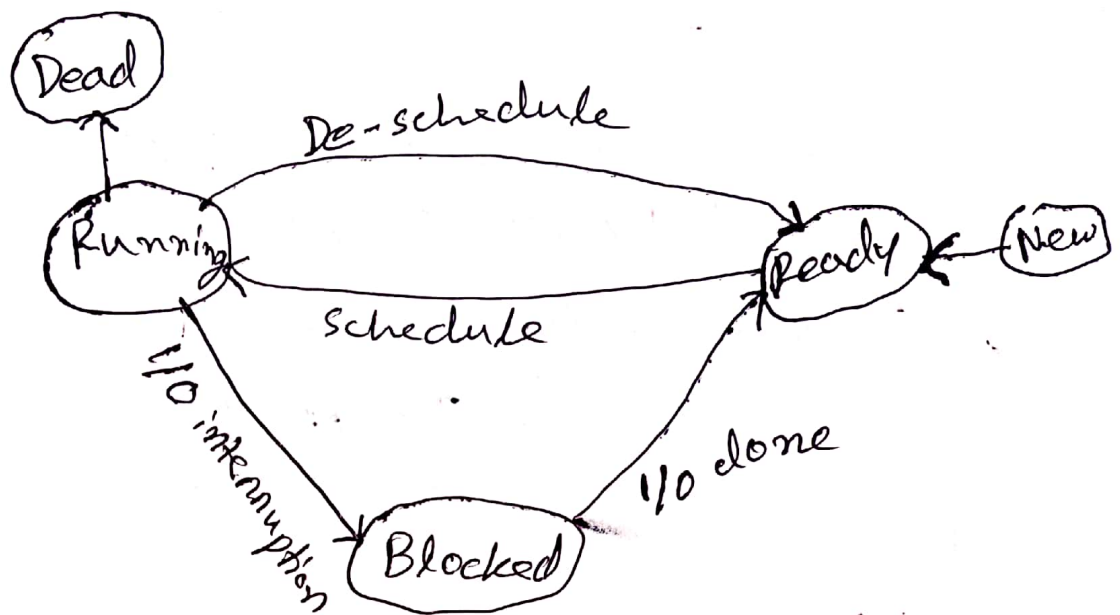 Dead
De-schedule
Running
Ready
New
Schedule
I/O interruption
I/O done
Blocked